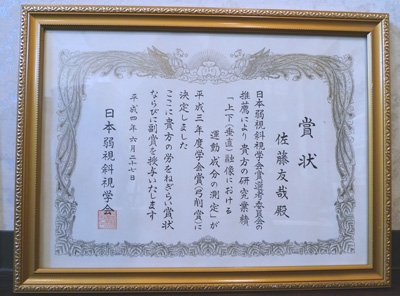 賞状
佐藤友哉殿
日本弱視斜視学会賞選考委員会の
推薦により貴方の研究業績
「上下(垂直)融像における
運動成分の測定」が
平成三年度学会賞(弓削賞)に
決定しました
ここに貴方の労をねぎらい賞状
ならびに副賞を授与いたします
平成四年六月二十七日
日本弱視斜視学会